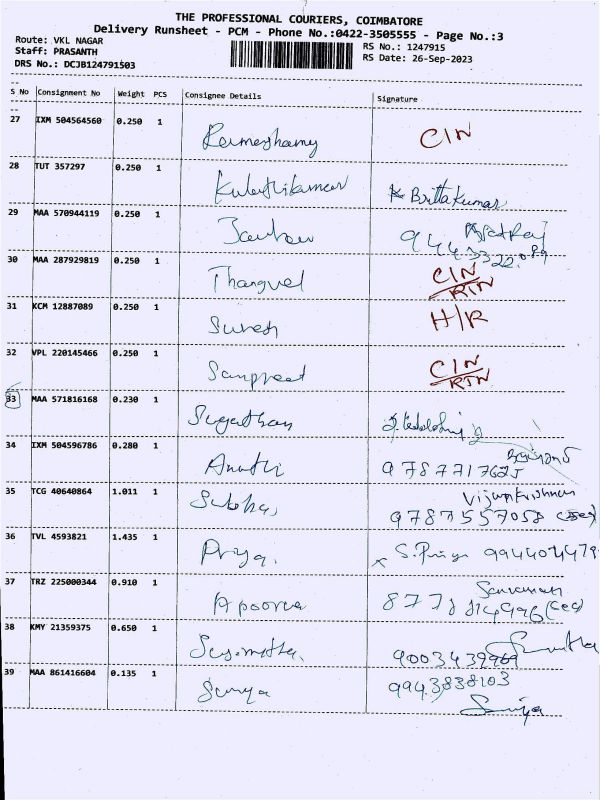 THE PROFESSIONAL COURIERS, COIMBATORE
Delivery Runsheet - PCM - Phone No.:0422-3505555 - Page No.:3
Route: VKL NAGAR
Staff: PRASANTH
DRS No.: DCJB124791503
RS No.: 1247915
RS Date: 26-Sep-2023
S No Consignment No Weight PCS Consignee Details Signature
27 IXM 504564560 0.250 1 CIN
28 TUT 357297 0.250 1 Brittakumar
29 MAA 570944119 0.250 1
30 MAA 287929819 0.250 1 Thangvel CIN/RTN
31 KCM 12887089 0.250 1 Suresh H/R
32 VPL 220145466 0.250 1 Sanpreet CIN/RTN
33 MAA 571816168 0.230 1 Sugathan
34 IXM 504596786 0.280 1 9787717625
35 TCG 40640864 1.011 1 9787557058
36 TVL 4593821 1.435 1 Priya. S. Priya 994404479
37 TRZ 225000344 0.910 1 Apoorva
38 KMY 21359375 0.650 1
39 MAA 861416604 0.135 1 Surya 9943838103